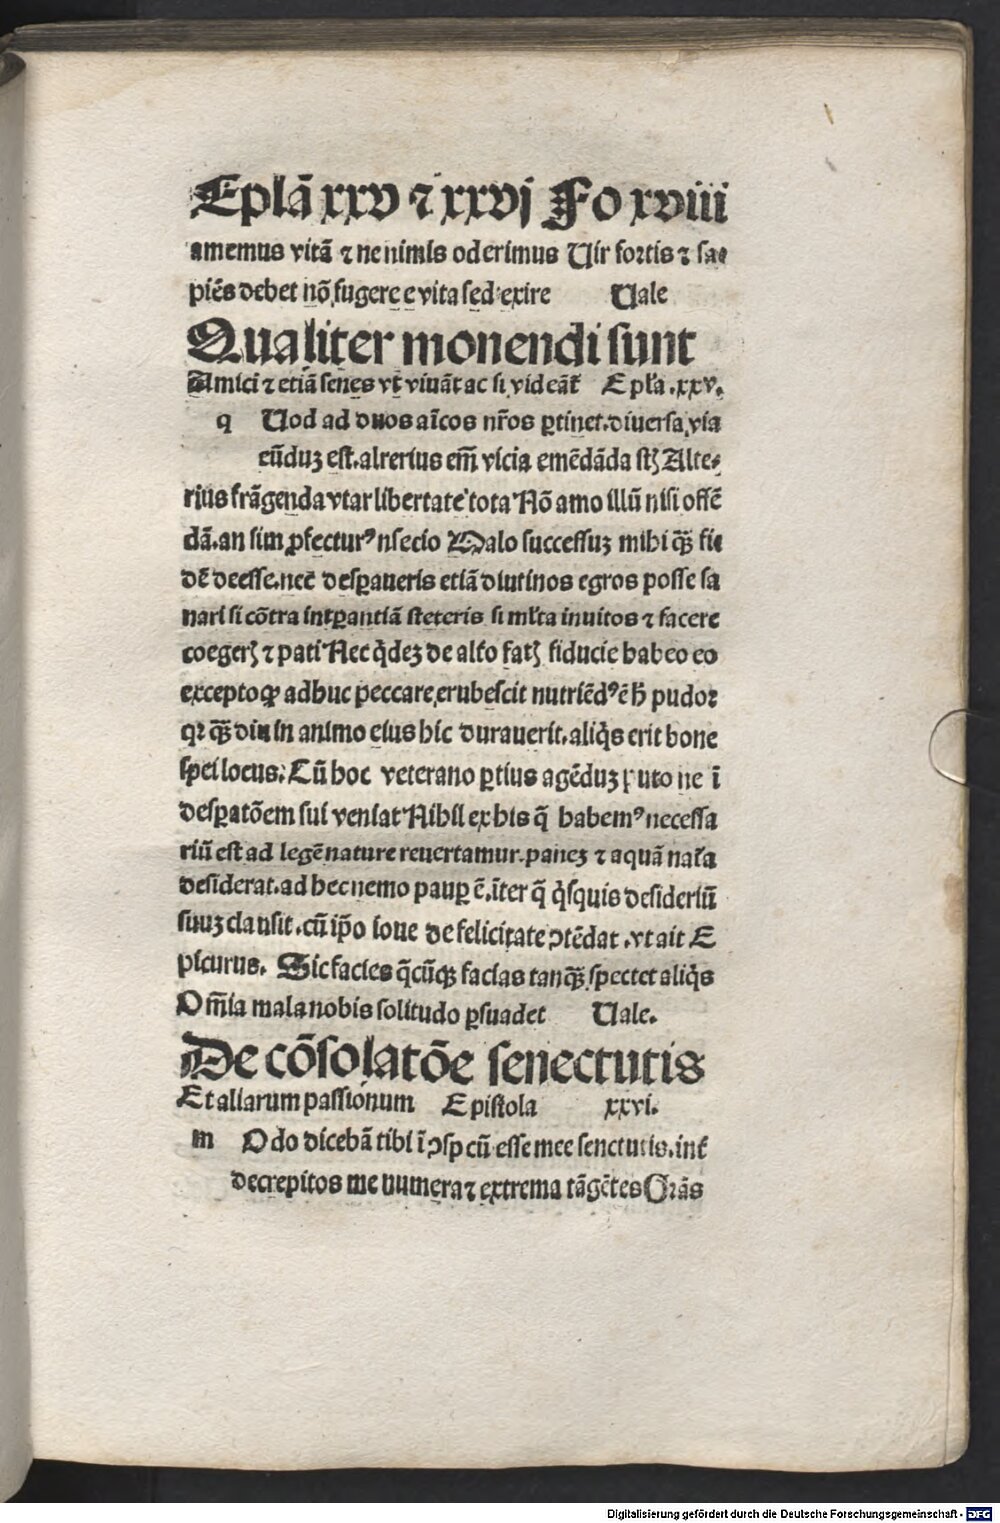 Eplā xxv ⁊ xxvj Fo xviii
amemus vitā ⁊ ne nimis oderimus Uir fortis ⁊ sa⸗
piēs debet nō fugere e vita sed exire Uale
Qualiter monendi sunt
Amici ⁊ etiā senes vt viuāt ac si videāt᷑ Epl̓a .xxv.
q Uod ad duos aīcos nr̄os ꝑtinet.diuersa via
eūduꝫ est.alterius em̄ vicia emēdāda st̄ Alte⸗
rius frāgenda vtar libertate tota Nō amo illū nisi offē
dā.an sim ꝓfecturꝰ nescio Malo successuꝫ mihi qꝫ̄ fi⸗
dē deesse.nec̄ desꝑaueris etiā diutinos egros posse sa
nari si cōtra intꝑantiā steteris si ml̓ta inuitos ⁊ facere
coeger̄ ⁊ pati Nec q̇deꝫ de alt̓o sat̄ fiducie habeo eo
excepto qꝙ adhuc peccare erubescit nutriēdꝰ ē h̄ pudor
qꝛ qꝫ̄ diu in animo eius hic durauerit.aliq̇s erit bone
spei locus. Cū hoc veterano ꝑtius agēduꝫ puto ne ī
desꝑatōem sui veniat Nihil ex his q̄ habemꝰ necessa
riū est ad legē nature reuertamur.paneꝫ ⁊ aquā nat̓a
desiderat.ad hec nemo pauꝑ ē.īter q̄ q̇squis desideriū
suuꝫ clausit.cū ip̄o ioue de felicitate ↄtēdat .vt ait E
picurus. Sic facies q̄cūqꝫ facias tanqꝫ̄ spectet aliq̇s
Om̄ia mala nobis solitudo ꝑsuadet Uale.
De cōsolatōe senectutis
Et aliarum passionum Epistola xxvi.
m Odo dicebā tibi ī ↄspcū esse mee senectutis.int̓
decrepitos me numera ⁊ extrema tāgētes Grās
Digitalisierung gefördert durch die Deutsche Forschungsgemeinschaft - DFG